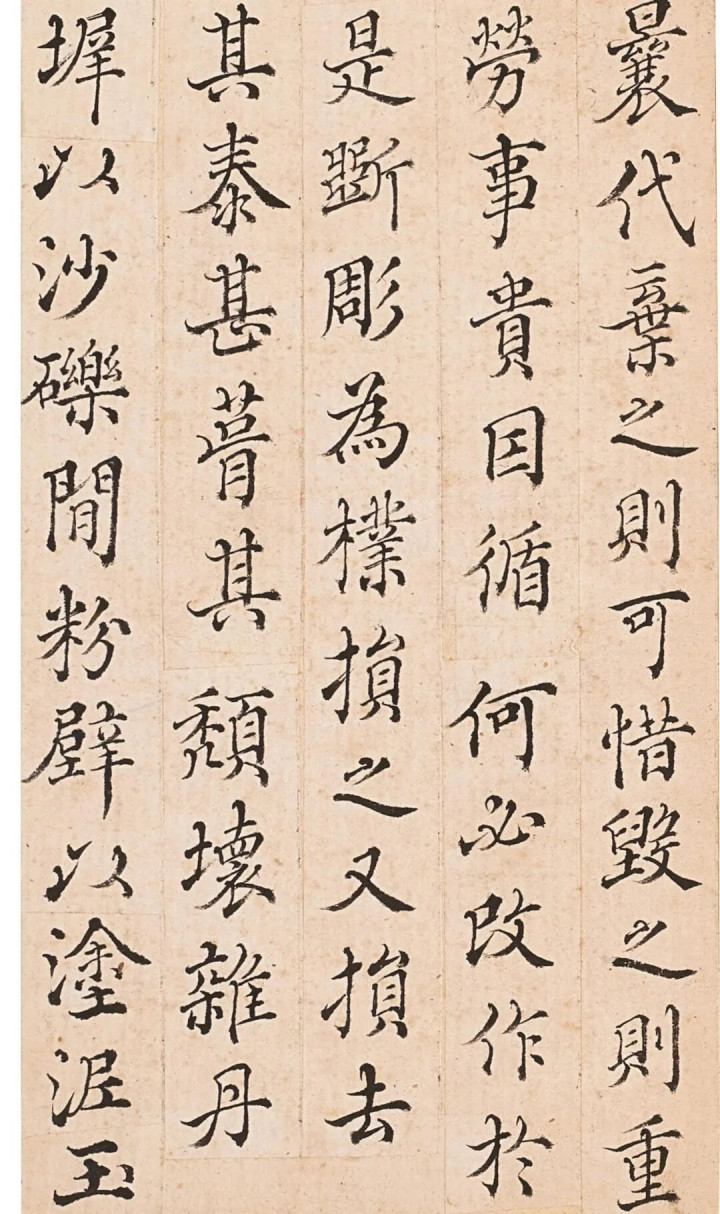 曩代棄之則可惜毀之則重
勞事貴因循何必改作於
是斲彫為樸損之又損去
其泰甚葺其頹壞雜丹
墀以沙礫間粉壁以塗泥玉